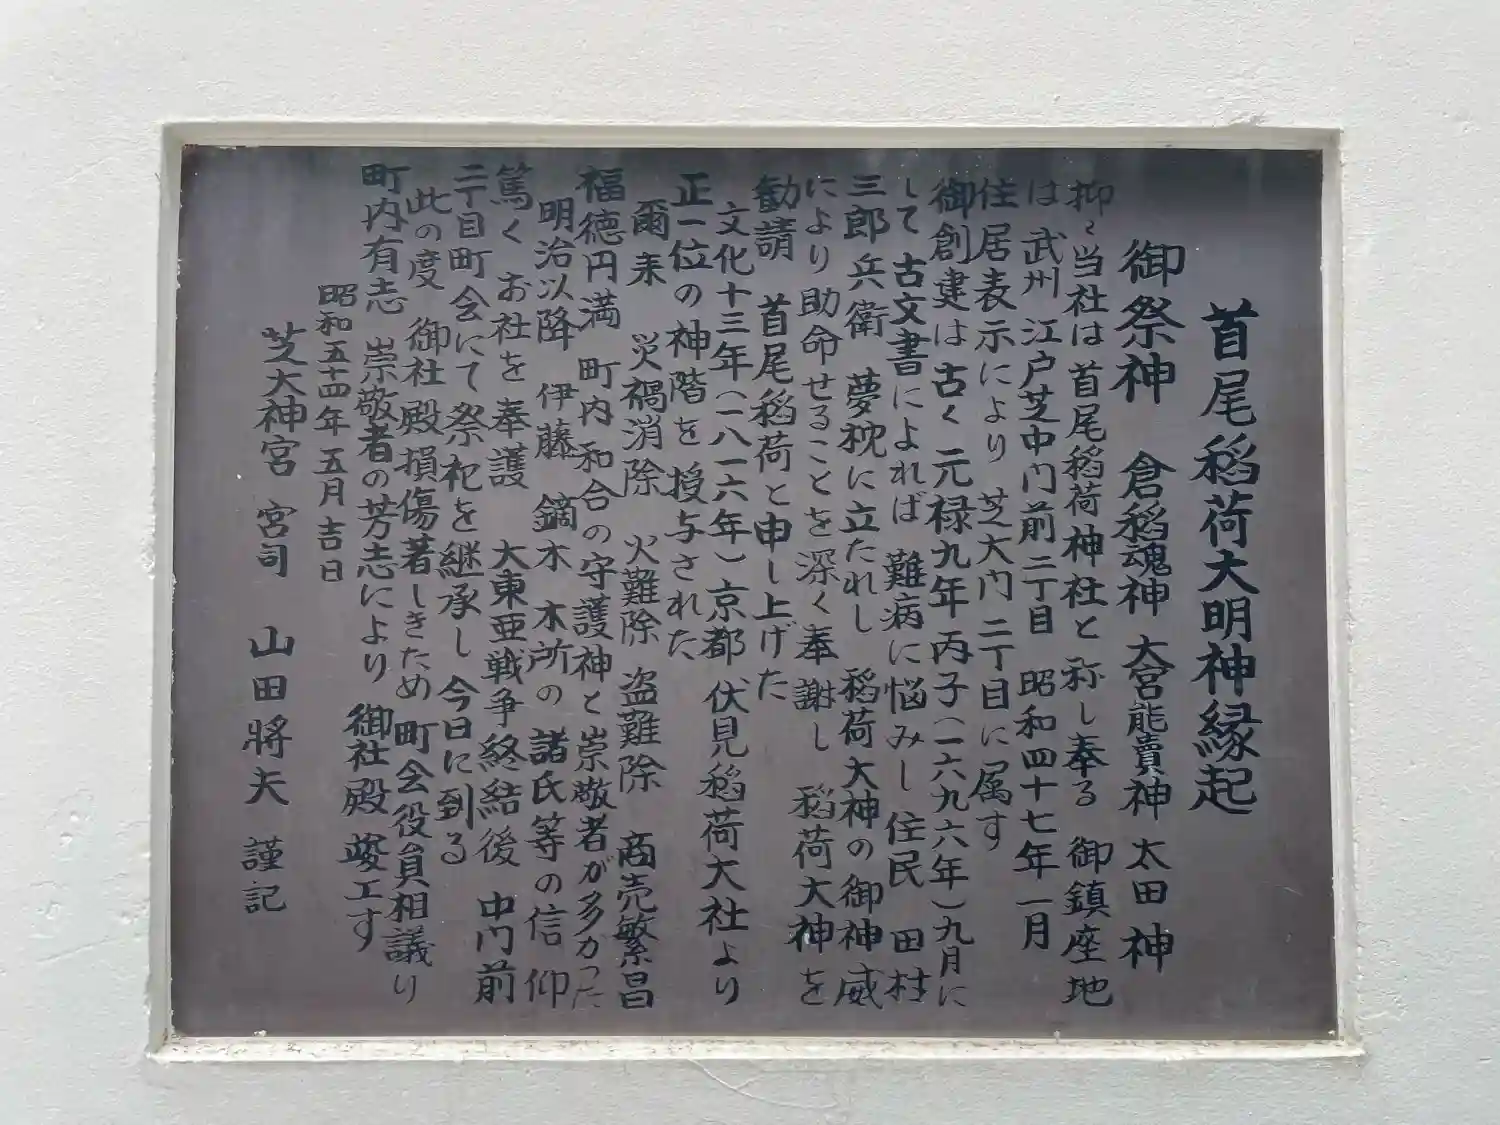 首尾稲荷大明神縁起
御祭神 倉稲魂神 大宮能賣神 太田神
抑々当社は 首尾稲荷神社と 称し奉る 御鎮座地
は 武州 江戸芝中門前二丁目 昭和四十七年一月
住居表示により 芝大門 二丁目に属す
御創建は 古く 元禄九年 丙子(一六九六年)九月に
して 古文書によれば 難病に悩みし 住民 田村
三郎兵衛 夢枕に立たれし 稲荷大神の御神威
により 助命せることを 深く奉謝し 稲荷大神を
勧請 首尾稲荷と申し上げた
文化十三年(一八一六年)京都 伏見稲荷大社より
正一位の神階を 授与された
爾来 災禍消除 火難除 盗難除 商売繁昌
福徳円満 町内和合の守護神と 崇敬者が多かった
明治以降 伊藤 鏑木 本所の 諸氏等の信仰
篤く お社を奉護 大東亜戦争 終結後 中門前
二丁目町会にて 祭祀を継承し 今日に到る
此の度 御社殿損傷著しきため 町会役員相議り
町内有志 崇敬者の芳志により 御社殿 竣工す
昭和五十四年 五月 吉日
芝大神宮 宮司 山田將夫 謹記